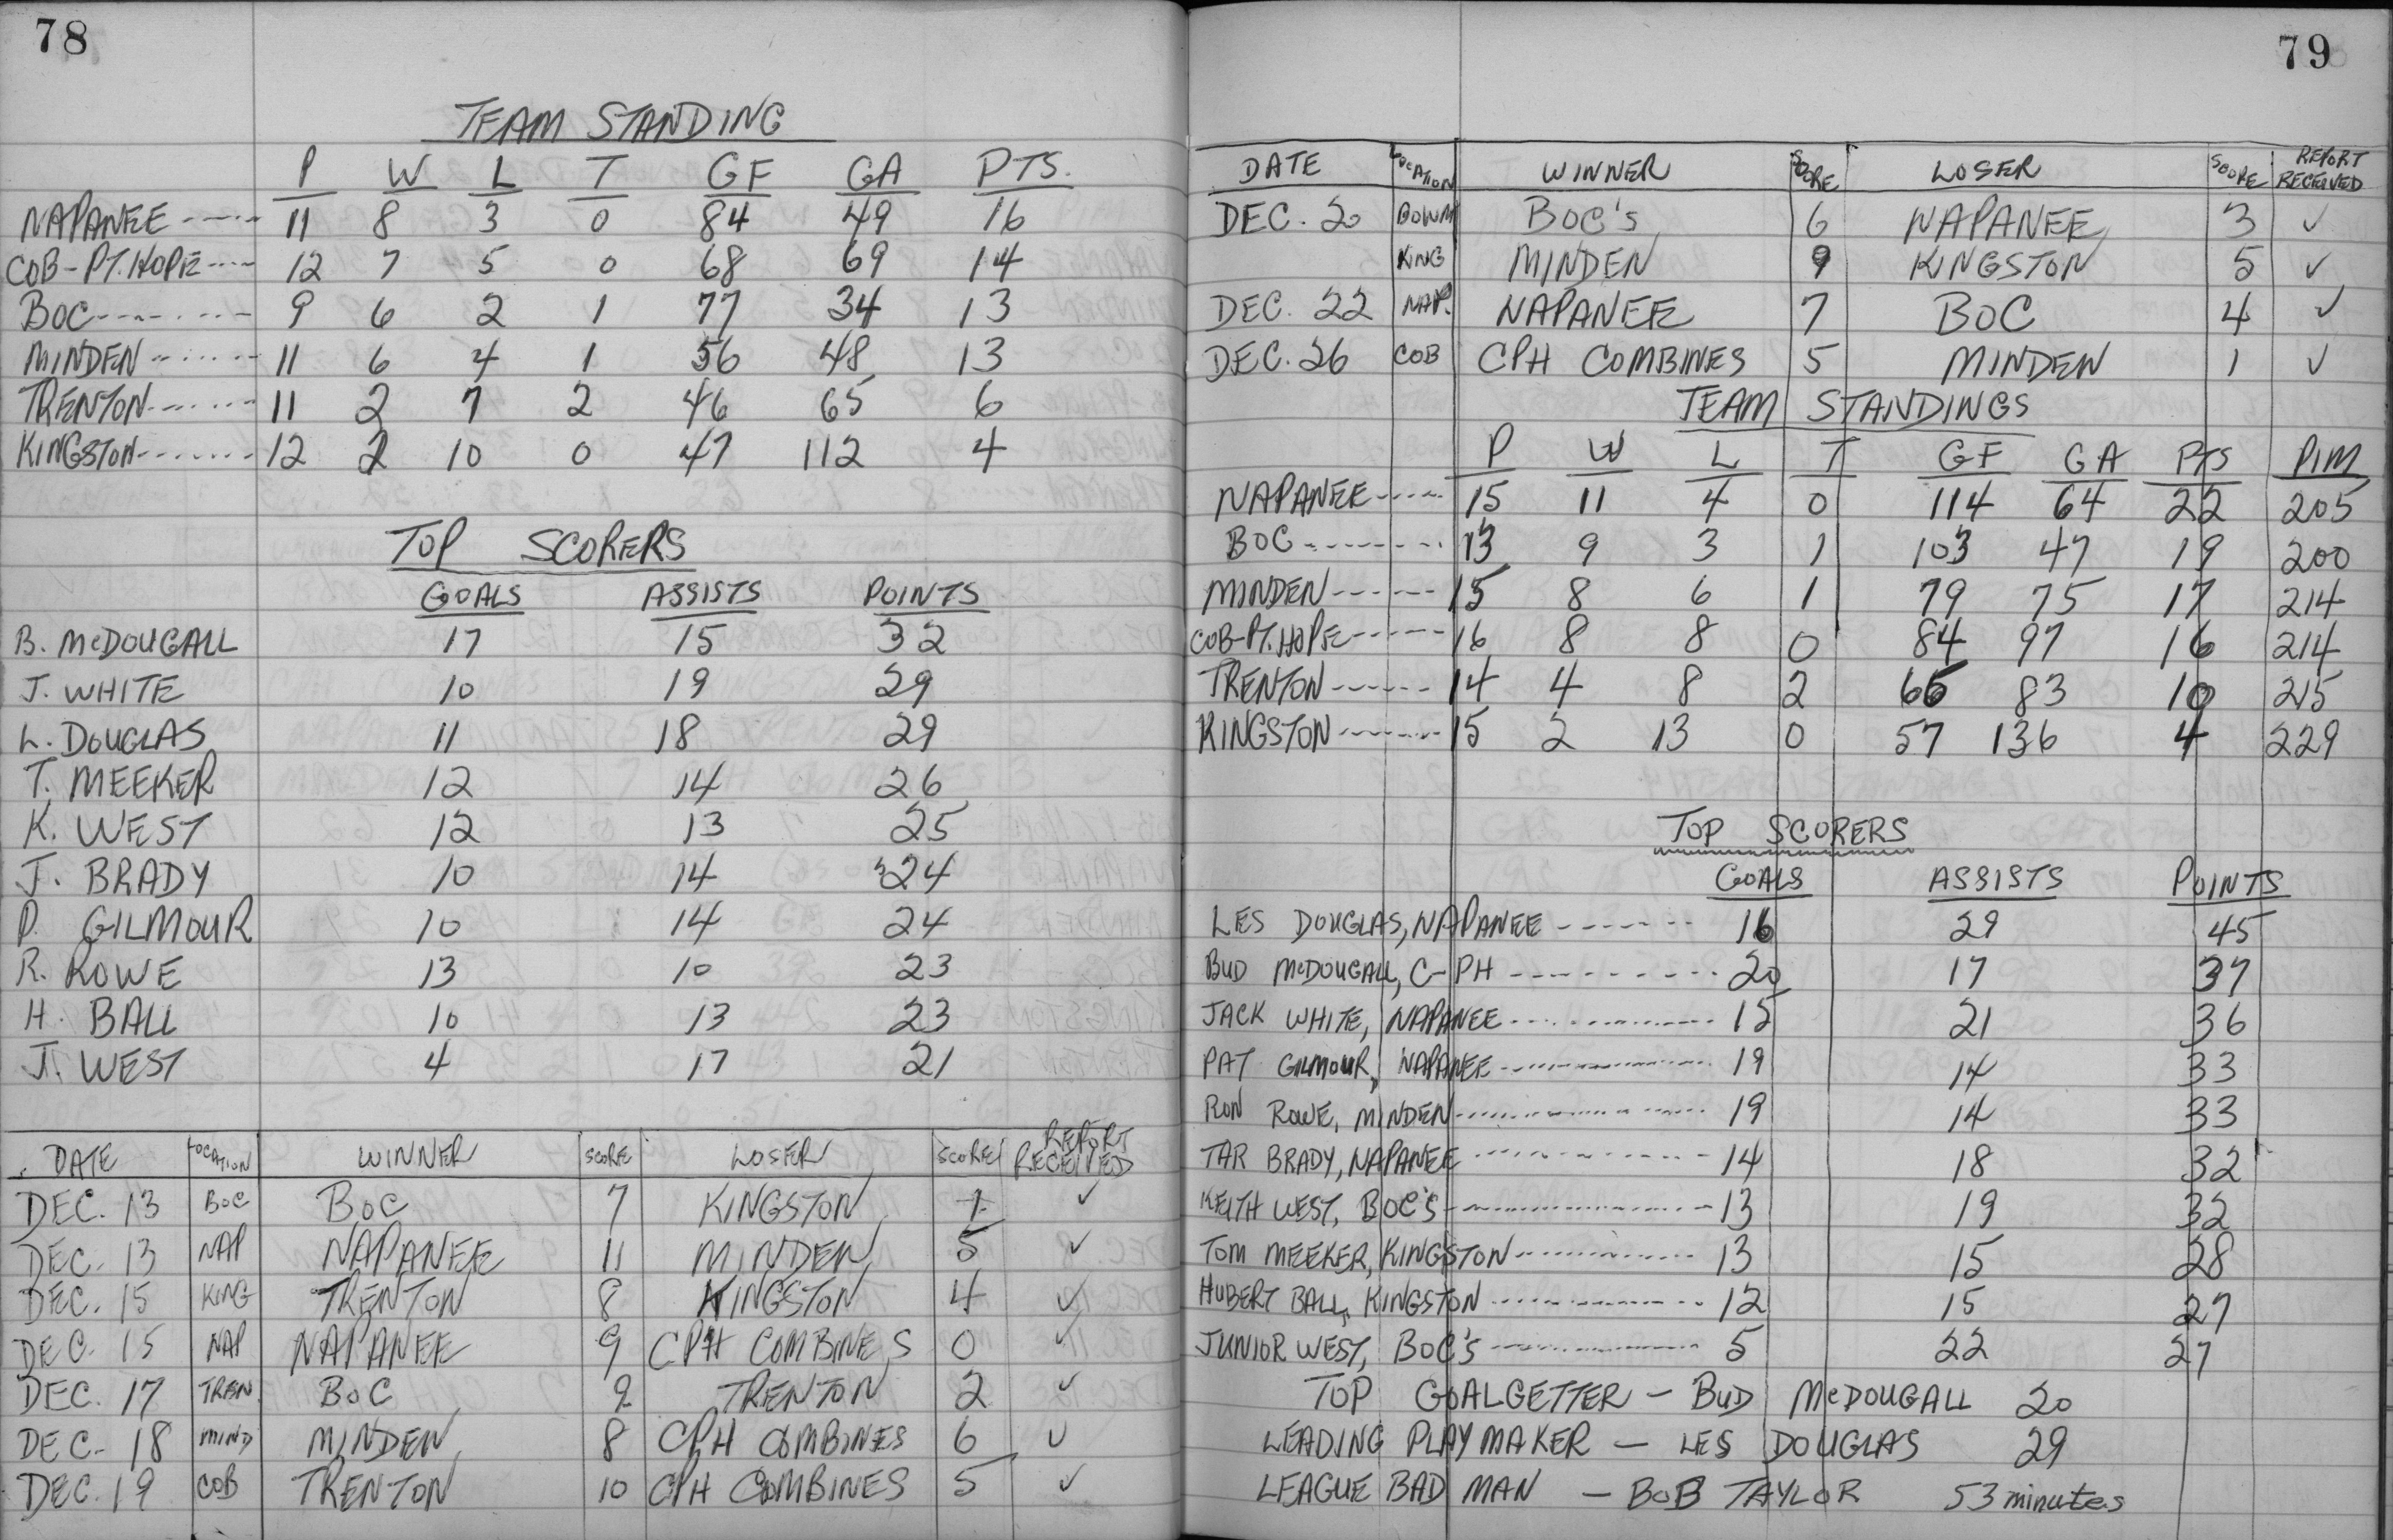 78
TEAM STANDING
P W L T GF GA PTS.
NAPANEE 11 8 3 0 84 49 16
COB-PT. HOPE 12 7 5 0 68 69 14
BOC 9 6 2 1 77 34 13
MINDEN 11 6 4 1 56 48 13
TRENTON 11 2 7 2 46 65 6
KINGSTON 12 2 10 0 47 112 4
TOP SCORERS
GOALS ASSISTS POINTS
B. McDOUGALL 17 15 32
J. WHITE 10 19 29
L. DOUGLAS 11 18 29
T. MEEKER 12 14 26
K. WEST 12 13 25
J. BRADY 10 14 24
P. GILMOUR 10 14 24
R. ROWE 13 10 23
H. BALL 10 13 23
J. WEST 4 17 21
DATE LOCATION WINNER SCORE LOSER SCORE REPORT RECEIVED
DEC. 13 BOC BOC 7 KINGSTON 1 ✓
DEC. 13 NAP NAPANEE 11 MINDEN 5 ✓
DEC. 15 KING TRENTON 8 KINGSTON 4 ✓
DEC. 15 NAP NAPANEE 9 CPH COMBINES 0 ✓
DEC. 17 TREN. BOC 9 TRENTON 2 ✓
DEC. 18 MIND MINDEN 8 CPH COMBINES 6 ✓
DEC. 19 COB TRENTON 10 CPH COMBINES 5 ✓
79
DATE LOCATION WINNER SCORE LOSER SCORE REPORT RECEIVED
DEC. 20 BOWM BOC's 6 NAPANEE 3 ✓
KING MINDEN 9 KINGSTON 5 ✓
DEC. 22 NAP. NAPANEE 7 BOC 4 ✓
DEC. 26 COB CPH COMBINES 5 MINDEN 1 ✓
TEAM STANDINGS
P W L T GF GA PTS PIM
NAPANEE 15 11 4 0 114 64 22 205
BOC 13 9 3 1 103 47 19 200
MINDEN 15 8 6 1 79 75 17 214
COB-PT. HOPE 16 8 8 0 84 97 16 214
TRENTON 14 4 8 2 66 83 10 215
KINGSTON 15 2 13 0 57 136 4 229
TOP SCORERS
GOALS ASSISTS POINTS
LES DOUGLAS, NAPANEE 16 29 45
BUD McDOUGALL, C-PH 20 17 37
JACK WHITE, NAPANEE 15 21 36
PAT GILMOUR, NAPANEE 19 14 33
RON ROWE, MINDEN 19 14 33
TAR BRADY, NAPANEE 14 18 32
KEITH WEST, BOC'S 13 19 32
TOM MEEKER, KINGSTON 13 15 28
HUBERT BALL, KINGSTON 12 15 27
JUNIOR WEST, BOC'S 5 22 27
TOP GOALGETTER - BUD McDOUGALL 20
LEADING PLAYMAKER - LES DOUGLAS 29
LEAGUE BAD MAN - BOB TAYLOR 53 minutes